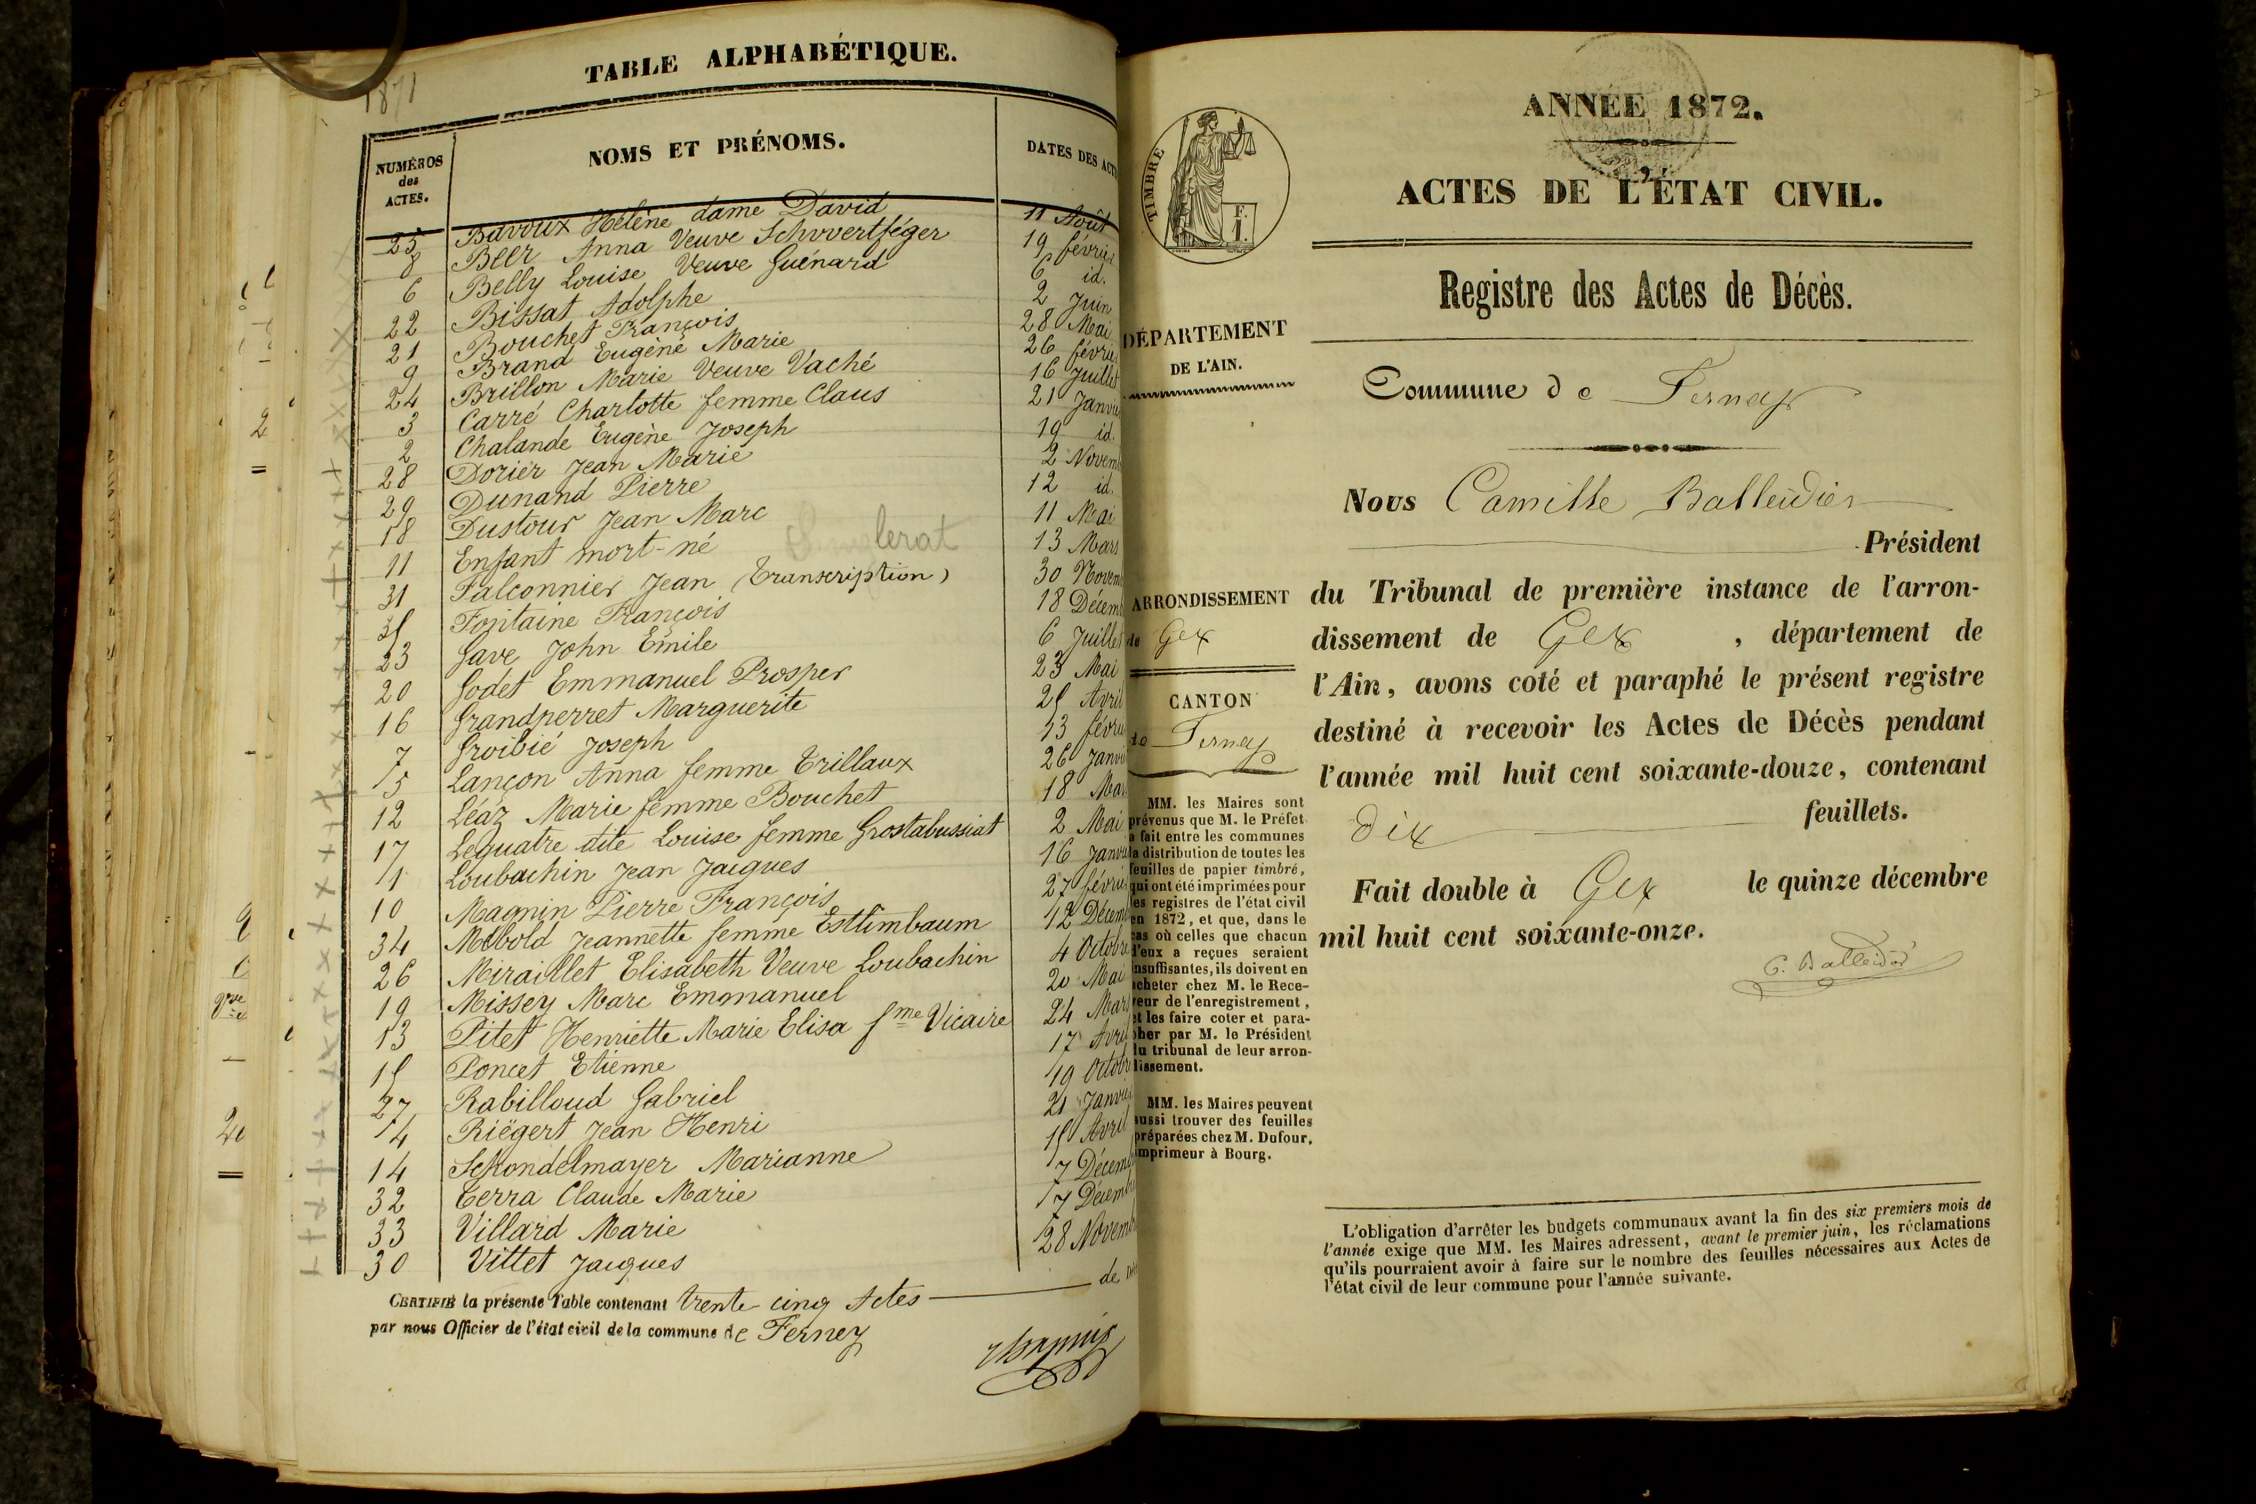 1871
TABLE ALPHABÉTIQUE.
NUMÉROS
des
ACTES.
NOMS ET PRÉNOMS.
DATES DES ACT
25 Bavoux Hélène dame David 11 Août
8 Beer Anna Veuve Schwertféger 19 févrie
6 Belly Louise Veuve Guénard 6 id.
22 Bissat Adolphe 2 Juin
21 Bouchet François 28 Mai
9 Brand Eugène Marie 26 févrie
24 Brillon Marie Veuve Vaché 16 Juillet
3 Carré Charlotte femme Claus 21 Janvie
2 Chalande Eugène Joseph 19 id.
28 Dorier Jean Marie 2 Novemb
29 Dunand Pierre 12 id.
18 Dustour Jean Marc 11 Mai
11 Enfant mort-né 13 Mars
31 Falconnier Jean (Transcription) 30 Novem
35 Fontaine François 18 Décemb
23 Gave John Emile 6 Juillet
20 Godet Emmanuel Prosper 23 Mai
16 Grandperret Marguerite 25 Avril
7 Groibié Joseph 13 févri
5 Lançon Anna femme Trillaux 26 Janvi
12 Léáz Marie femme Bouchet 18 Mar
17 Lequatre dite Louise femme Grostabussiat 2 Mai
1 Loubachin Jean Jacques 16 Janvi
10 Magnin Pierre François 27 févri
34 Mebold Jeannette femme Esttimbaum 12 Décem
26 Miraillet Elisabeth Veuve Loubachin 4 Octobre
19 Missey Marc Emmanuel 20 Mai
13 Pitet Henriette Marie Elisa fme Vicaire 24 Mars
15 Poncet Etienne 17 Avril
27 Rabilloud Gabriel 19 Octobr
4 Riëgert Jean Henri 21 Janvie
14 Schondelmayer Marianne 15 Avril
32 Terra Claude Marie 7 Décemb
33 Villard Marie 7 Décemb
30 Vittet Jacques 28 Novemb
CERTIFIÉ la présente Table contenant trente-cinq Actes de
par nous Officier de l'état civil de la commune de Ferney
TIMBRE
F.
1.
DÉPARTEMENT
DE L'AIN.
ARRONDISSEMENT
de Gex
CANTON
de Ferney
MM. les Maires sont
prévenus que M. le Préfet
a fait entre les communes
la distribution de toutes les
feuilles de papier timbré,
qui ont été imprimées pour
les registres de l'état civil
en 1872, et que, dans le
cas où celles que chacun
d'eux a reçues seraient
insuffisantes, ils doivent en
acheter chez M. le Rece-
veur de l'enregistrement,
et les faire coter et para-
pher par M. le Président
du tribunal de leur arron-
dissement.
MM. les Maires peuvent
aussi trouver des feuilles
préparées chez M. Dufour,
imprimeur à Bourg.
ANNÉE 1872.
ACTES DE L'ÉTAT CIVIL.
Registre des Actes de Décès.
Commune de Ferney
Nous Camille Balleidier
Président
du Tribunal de première instance de l'arron-
dissement de Gex, département de
l'Ain, avons coté et paraphé le présent registre
destiné à recevoir les Actes de Décès pendant
l'année mil huit cent soixante-douze, contenant
dix feuillets.
Fait double à Gex le quinze décembre
mil huit cent soixante-onze.
C. Balleidier
L'obligation d'arrêter les budgets communaux avant la fin des six premiers mois de
l'année exige que MM. les Maires adressent, avant le premier juin, les réclamations
qu'ils pourraient avoir à faire sur le nombre des feuilles nécessaires aux Actes de
l'état civil de leur commune pour l'année suivante.